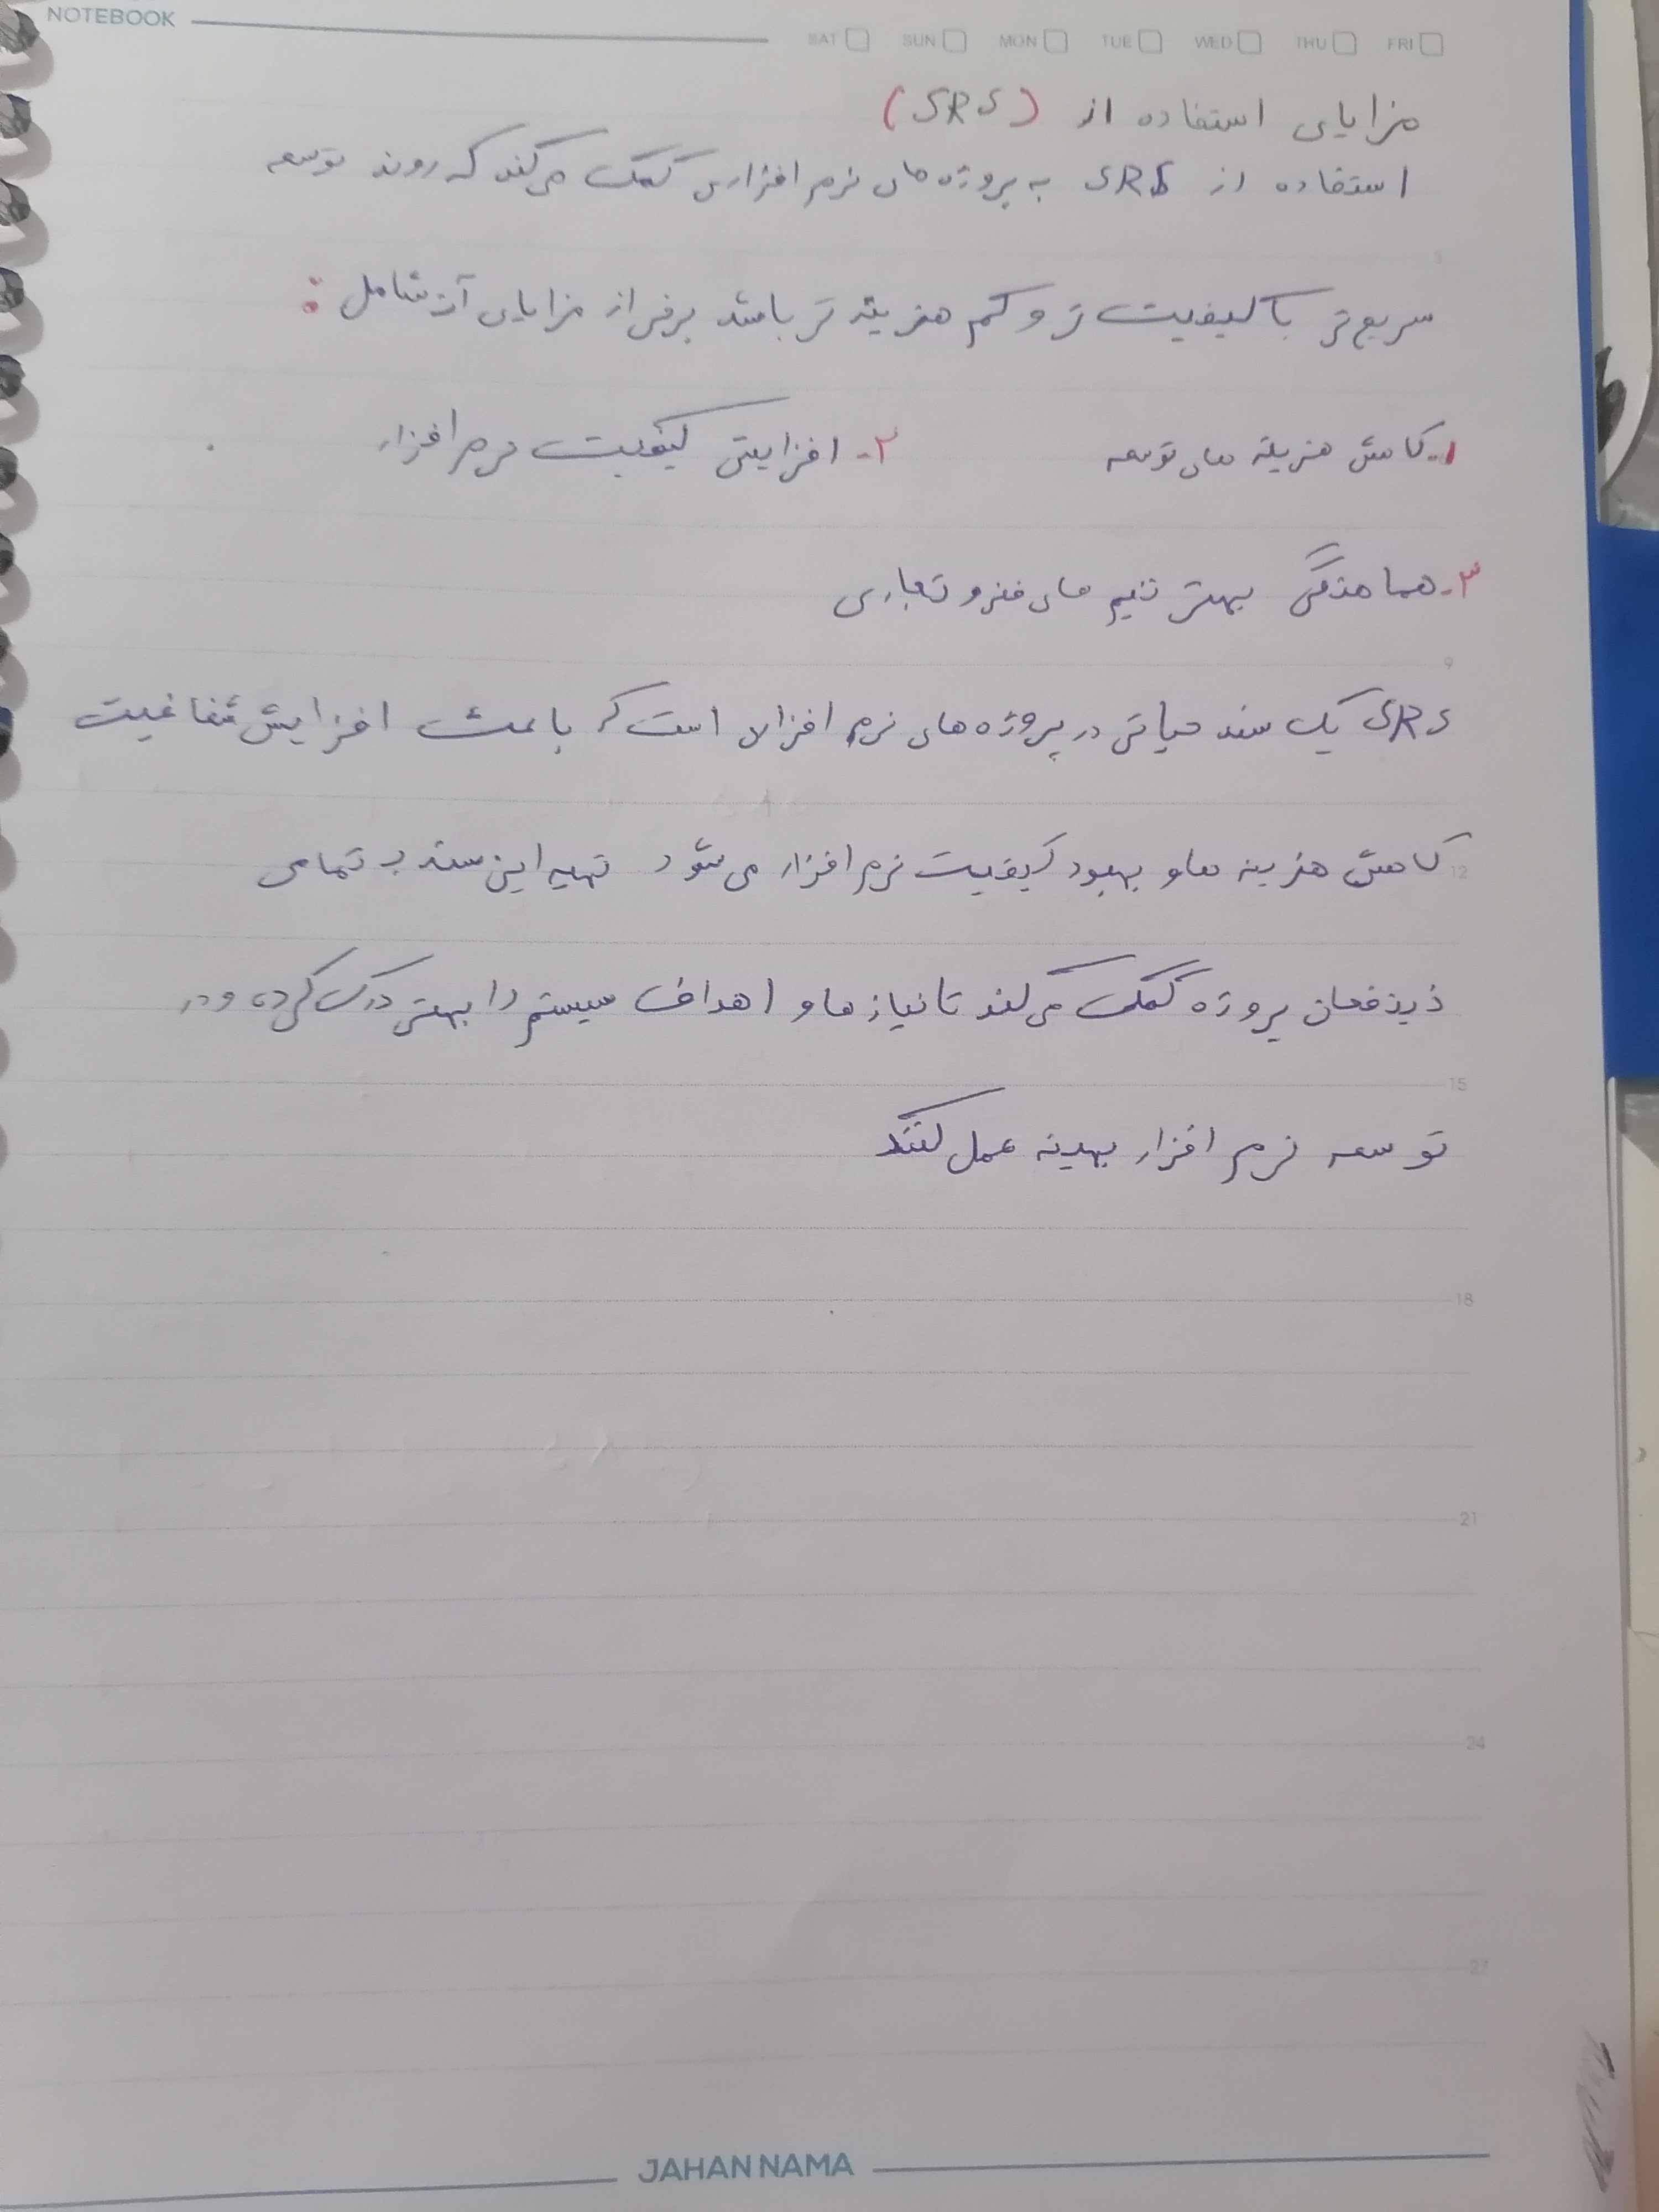 NOTEBOOK
SAT SUN MON TUE WED THU FRI
مزایای استفاده از (SRS)
استفاده از SRS به پروژه های نرم افزاری کمک می کند که روند توسعه
سریع تر با کیفیت تر و کم هزینه تر باشد برخی از مزایای آن شامل :
۱- کاهش هزینه های توسعه ۲- افزایش کیفیت نرم افزار
۳- هماهنگی بهتر تیم های فنی و تجاری
SRS یک سند حیاتی در پروژه های نرم افزاری است که باعث افزایش شفافیت
کاهش هزینه ها و بهبود کیفیت نرم افزار می شود تهیه این سند به تمامی
ذینفعان پروژه کمک می کند تا نیازها و اهداف سیستم را بهتر درک کرده و در
توسعه نرم افزار بهینه عمل کنند
9
12
15
18
21
24
27
JAHAN NAMA